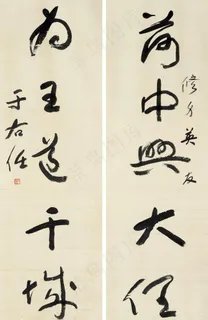 荷中興大任
修身英友
为王道干城
于右任